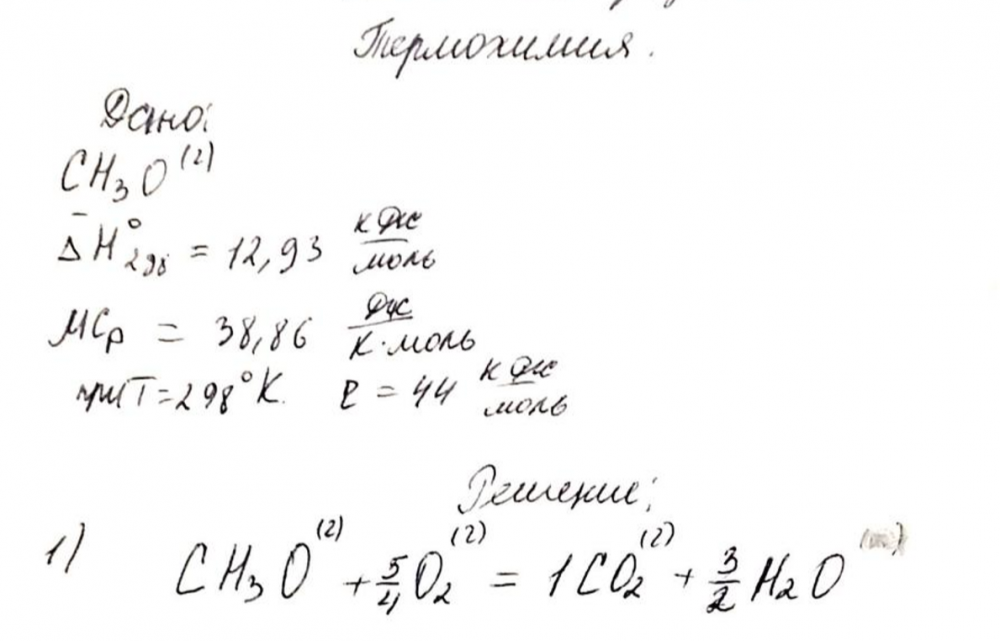 Термохимия.
Дано:
CH₃O⁽ᵍ⁾
ΔH̄°₂₉₈ = 12,93 кДж/моль
МСр = 38,86 Дж/К·моль
при T=298°К. r = 44 кДж/моль
Решение:
1) CH₃O⁽ᵍ⁾ + 5/4 O₂⁽ᵍ⁾ = 1CO₂⁽ᵍ⁾ + 3/2 H₂O